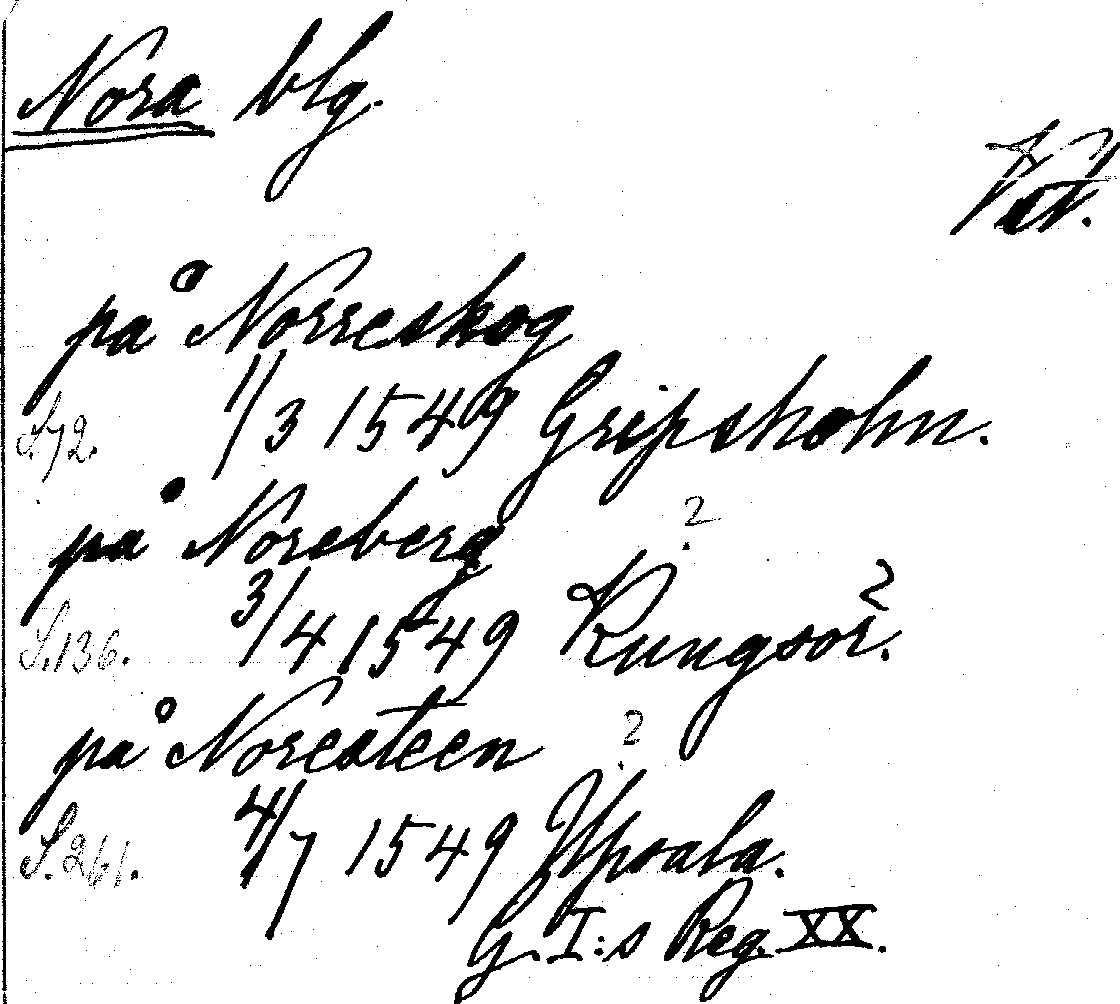 Nora blg.
Vstm.
på Norreskog
S.72. 1/3 1549 Gripsholm.
på Noreberg ?
S.136. 3/4 1549 Kungsör.
på Noresteen ?
S.261. 4/7 1549 Upsala.
G. I:s Reg. XX.